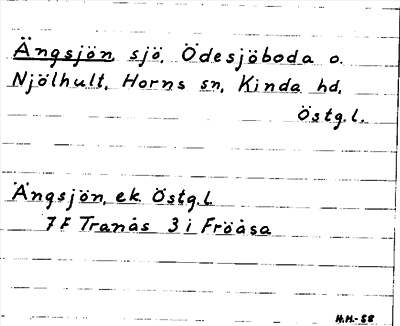 Ängsjön, sjö, Ödesjöboda o.
Njölhult, Horns sn, Kinda hd,
Östg.l.
Ängsjön, ek. Östg.l.
7F Tranås 3 i Fröåsa
H.H.-58